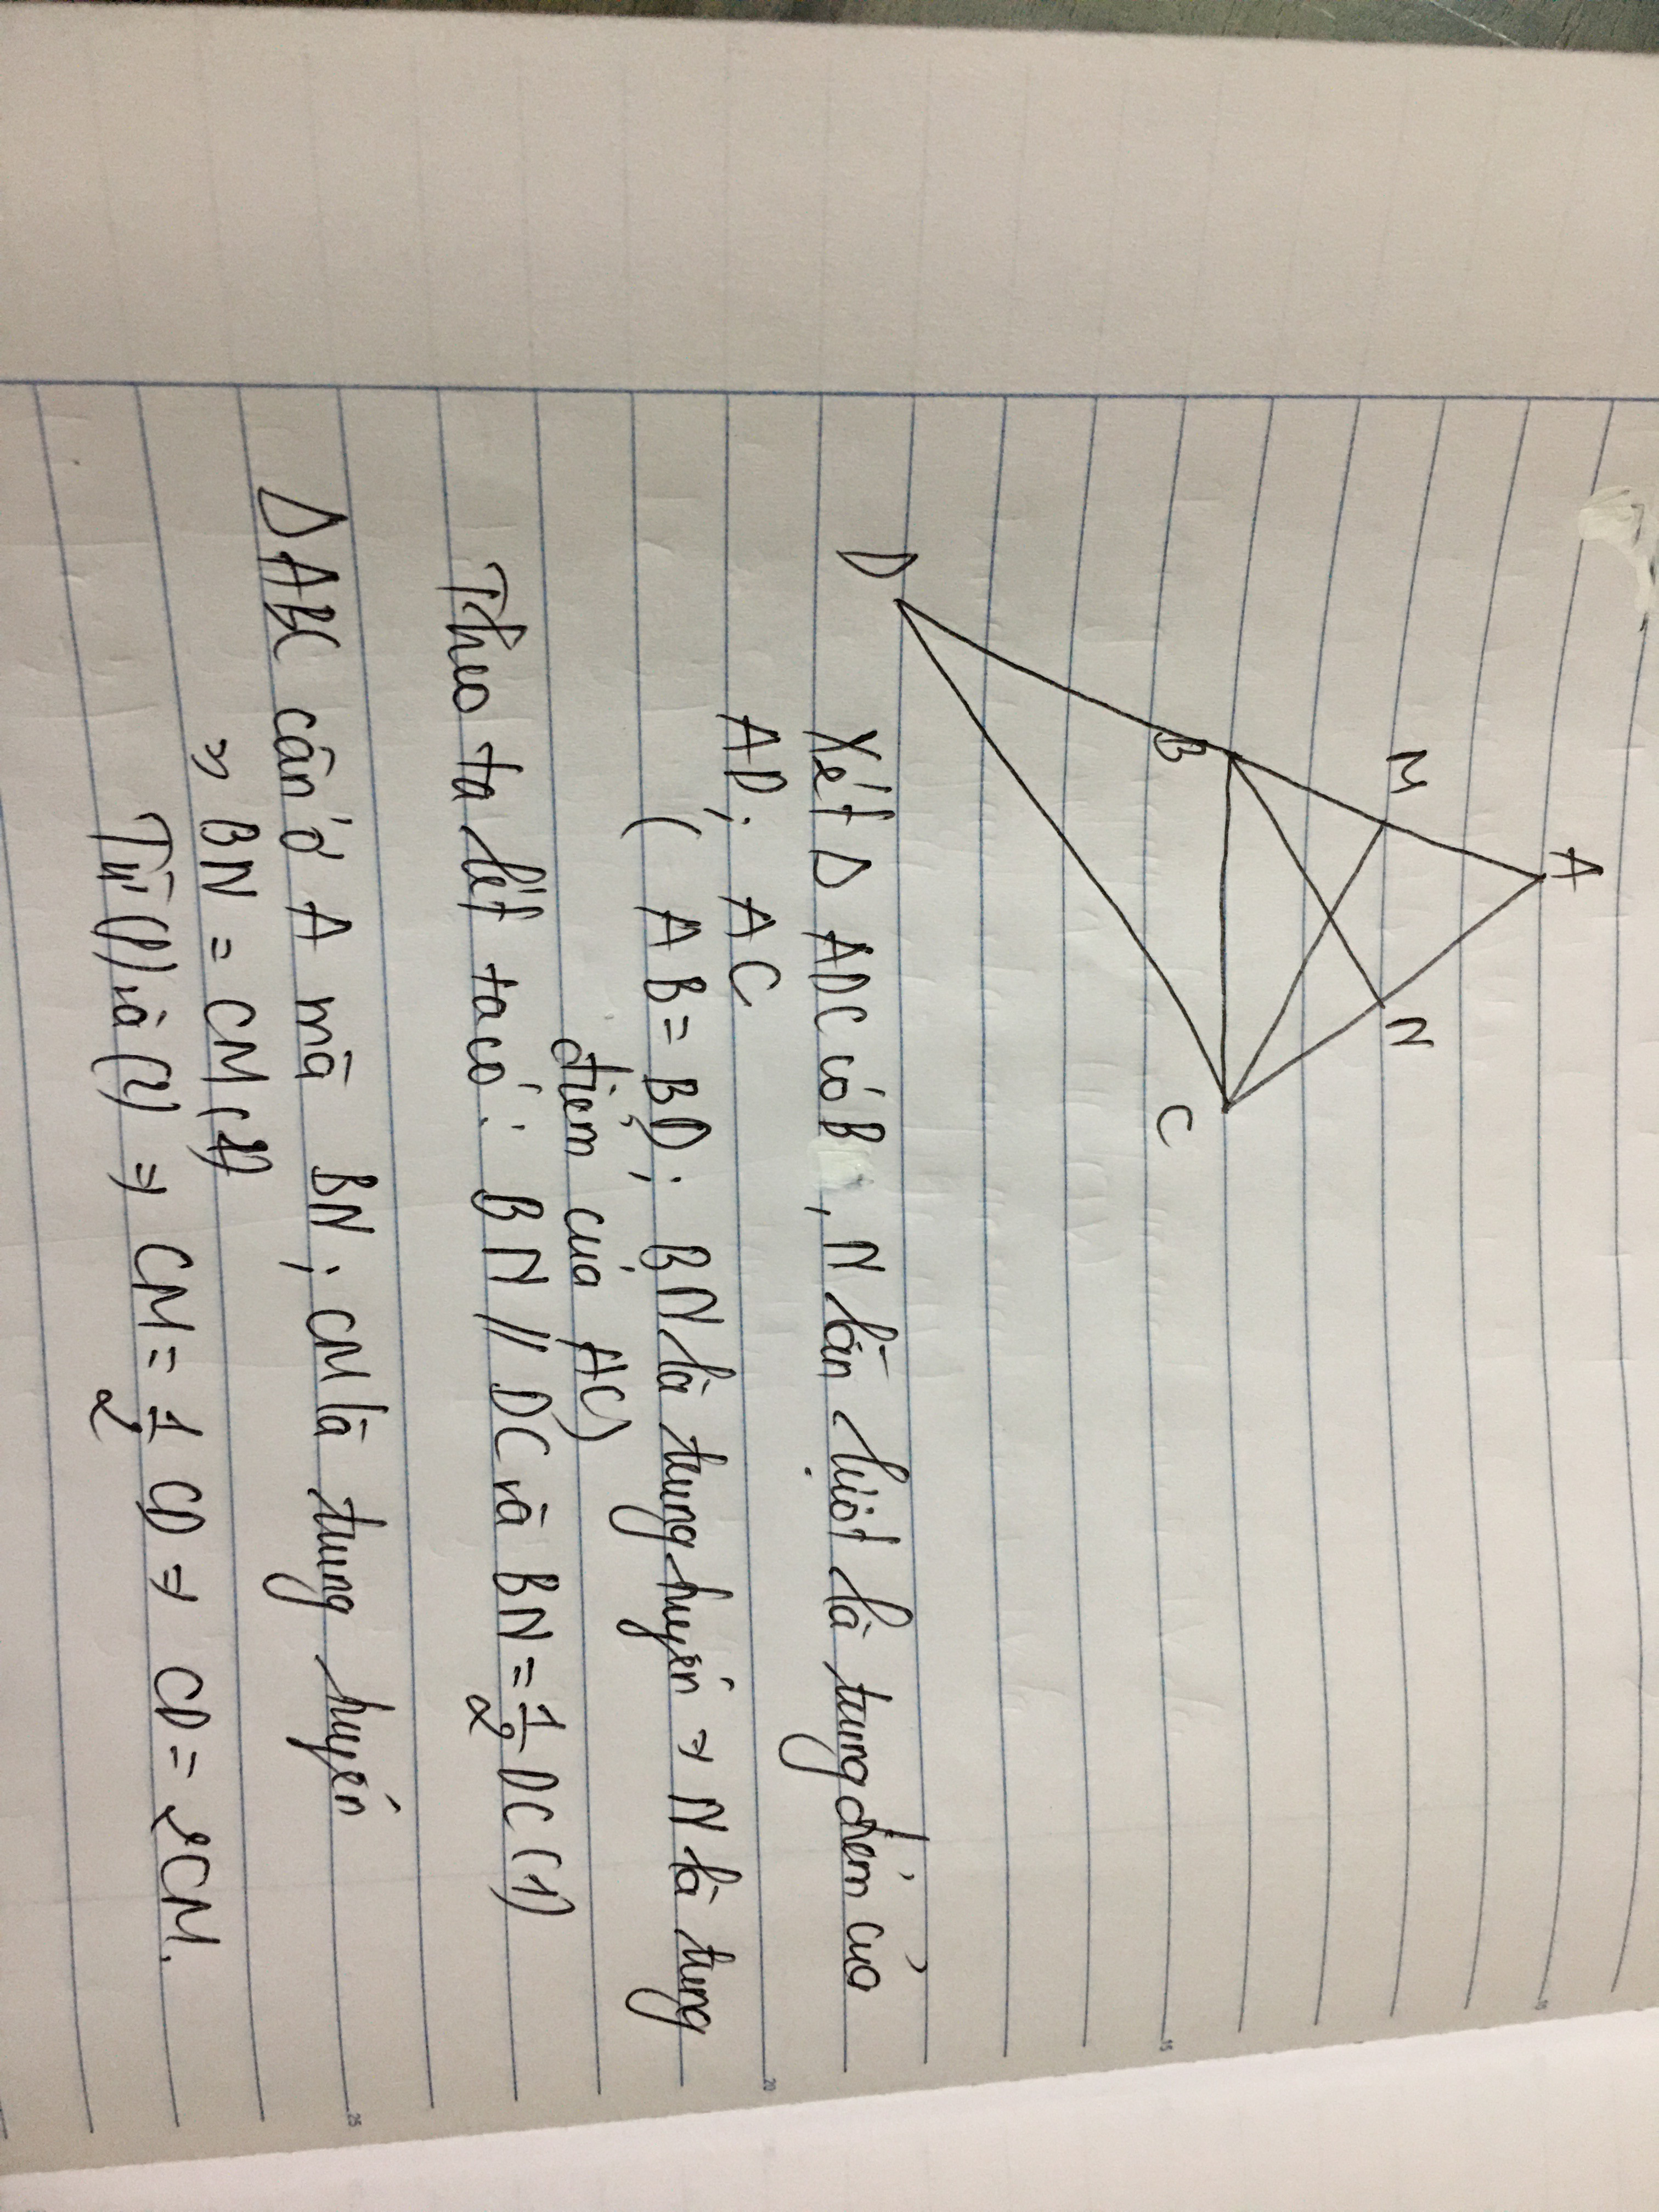 A
M
N
B
C
D
Xét Δ ADC có B, N lần lượt là trung điểm của
AD; AC
( AB = BD; BN là trung tuyến ⇒ N là trung
điểm của AC)
Theo ta lét ta có: BN // DC và BN = 1/2 DC (1)
Δ ABC cân ở A mà BN; CM là trung tuyến
⇒ BN = CM (2)
Từ (1) và (2) ⇒ CM = 1/2 CD ⇒ CD = 2CM.
25
20
15
10